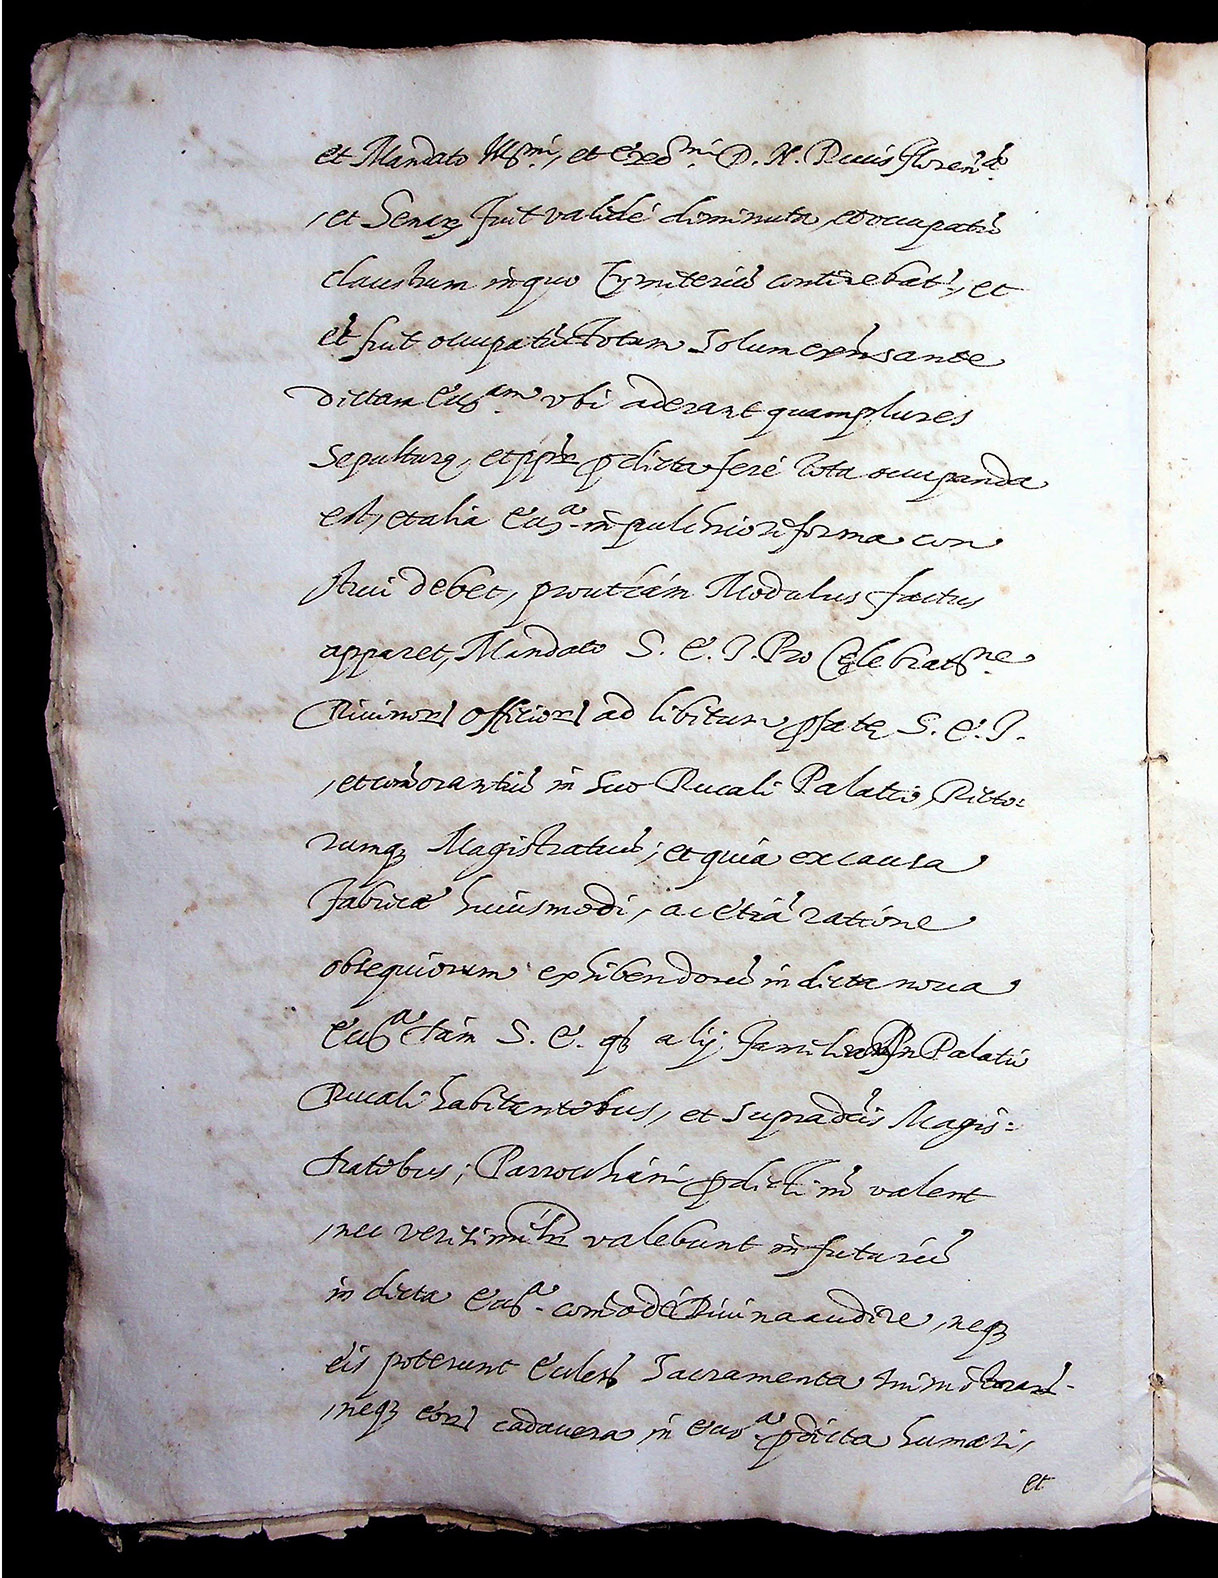 et Mandato Ill.mi, et Ecc.mi D. N. Ducis Florenę.
et Senarȝ fuit validé diminuta, et occupatũ
claustrum in quo Cymiterĩũ contĩnebat.r, et
ẽt fuit occupatũ totum Solum exñs ante
dictam Ecc.am vbi aderant quamplures
sepulturę, et ppĩr p̃dicta feré tota occupanda
est, et alia Ecc.a in pulchriori forma con
strui debet, prout iám Modulus factus
apparet, Mandato S. E. I. Pro Celebrat.ne
Diuinorȝ officiorȝ ad libitum p̃fatę S. E. I.
et com̃orantiũ in suo Ducali Palatio, Dicto=
rumqȝ Magistratuũ; et quia ex causa
fabricę huiusmodi, ac etiã ratione
obsequiorum exhibendorũ in dicta noua
Ecc.a tám S. E. qȝ alijs familiaribus in Palatio
Ducali habitantibus, et supradictis Magis=
tratibus; Parrochiani p̃dicti nõ valent
nec verisimilr valebunt in futurũ
in dicta Ecc.a com̃odé Diuina audire, neqȝ
eis poterunt Eccles. Sacramenta ministrari
neqȝ eorȝ cadauera in Ecc.a p̃dicta humari,
et